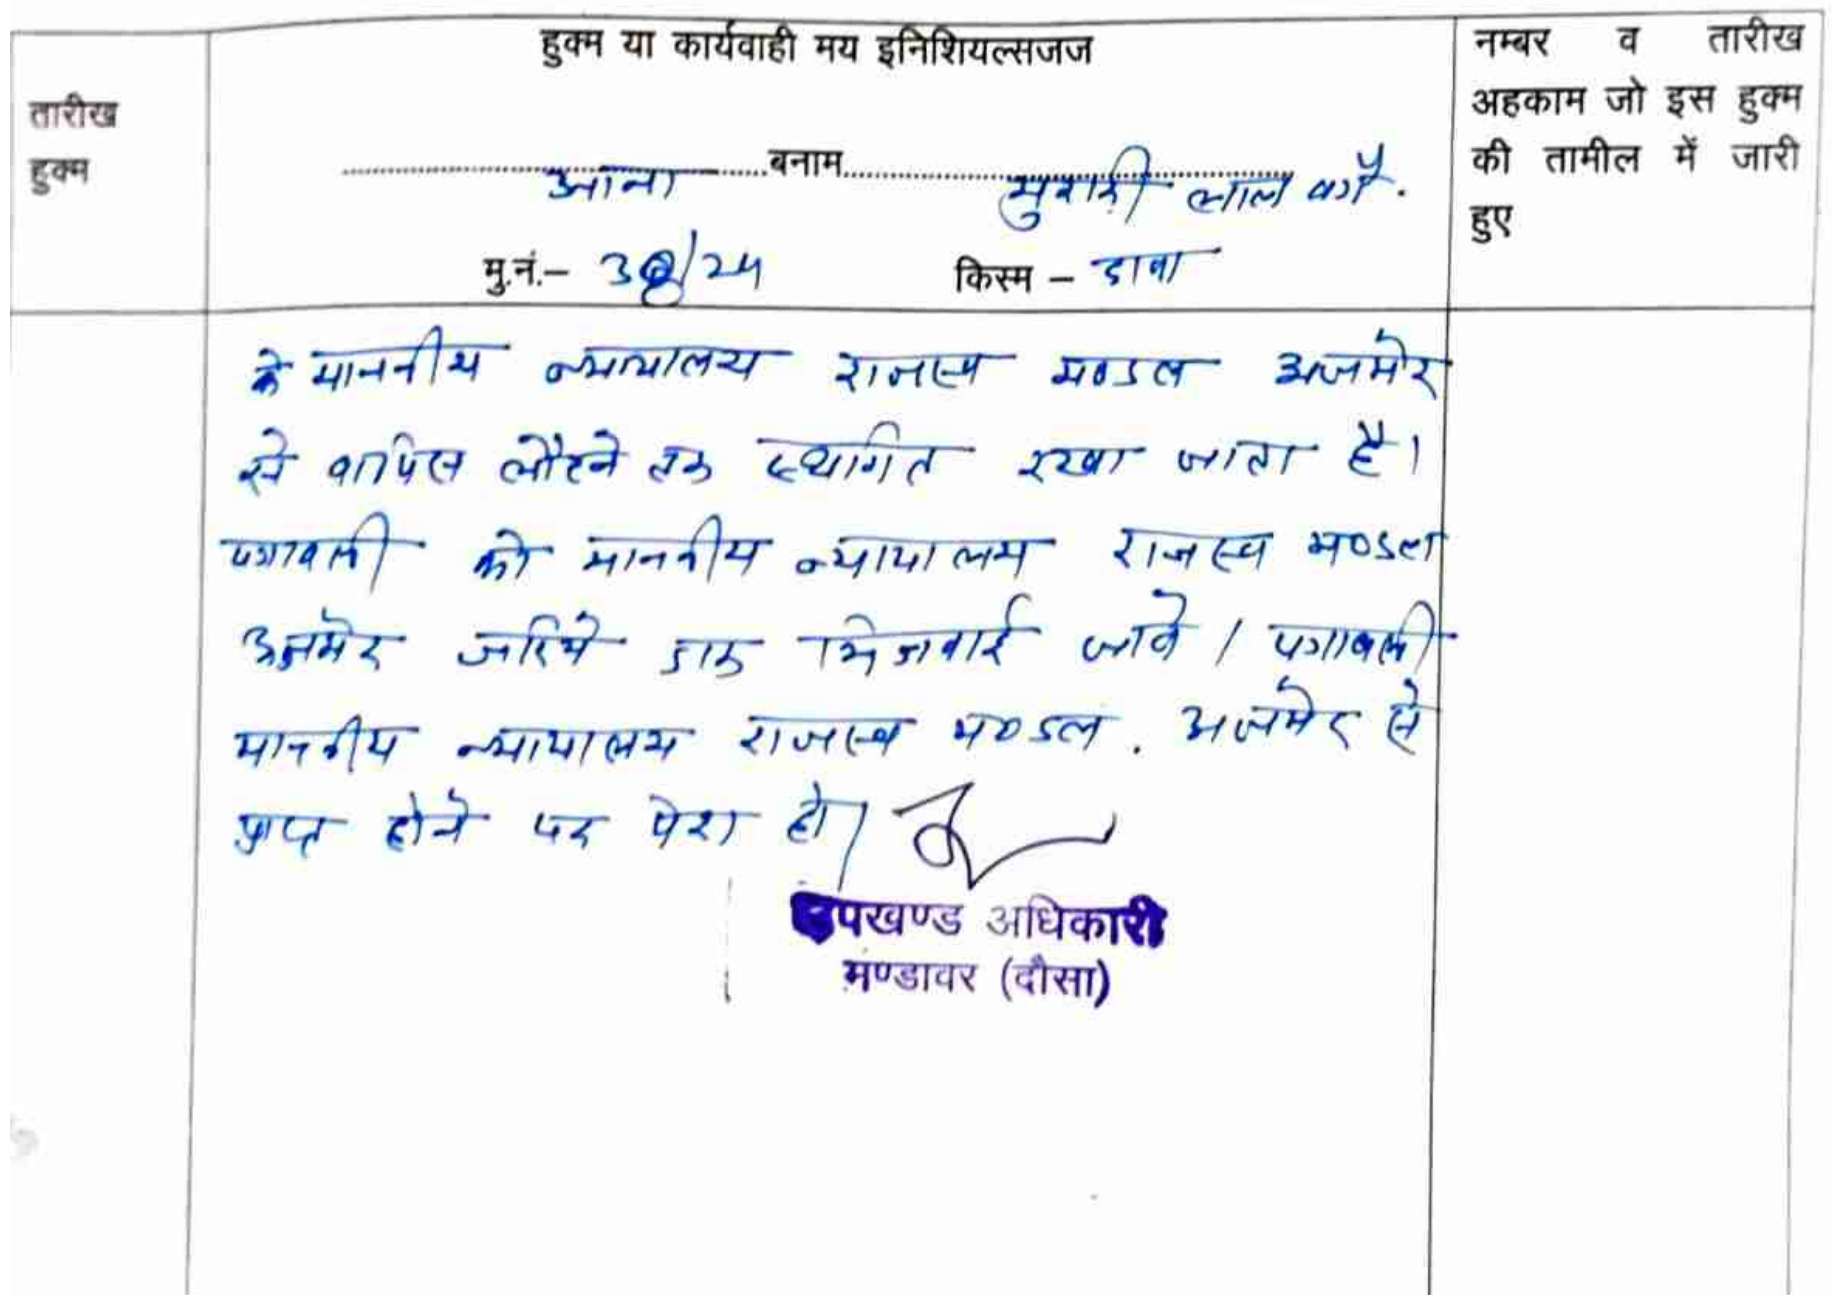 हुक्म या कार्यवाही मय इनिशियल्सजज
तारीख
हुक्म
आना बनाम मुरारी लाल वगै.
मु.नं.– /24 किस्म – दावा
नम्बर व तारीख
अहकाम जो इस हुक्म
की तामील में जारी
हुए
के माननीय न्यायालय राजस्व मण्डल अजमेर
से वापिस लौटने तक स्थगित रखा जाता है।
पत्रावली को माननीय न्यायालय राजस्व मण्डल
अजमेर जरिये डाक भिजवाई जावे। पत्रावली
माननीय न्यायालय राजस्व मण्डल. अजमेर से
प्राप्त होने पर पेश हो।
उपखण्ड अधिकारी
मण्डावर (दौसा)